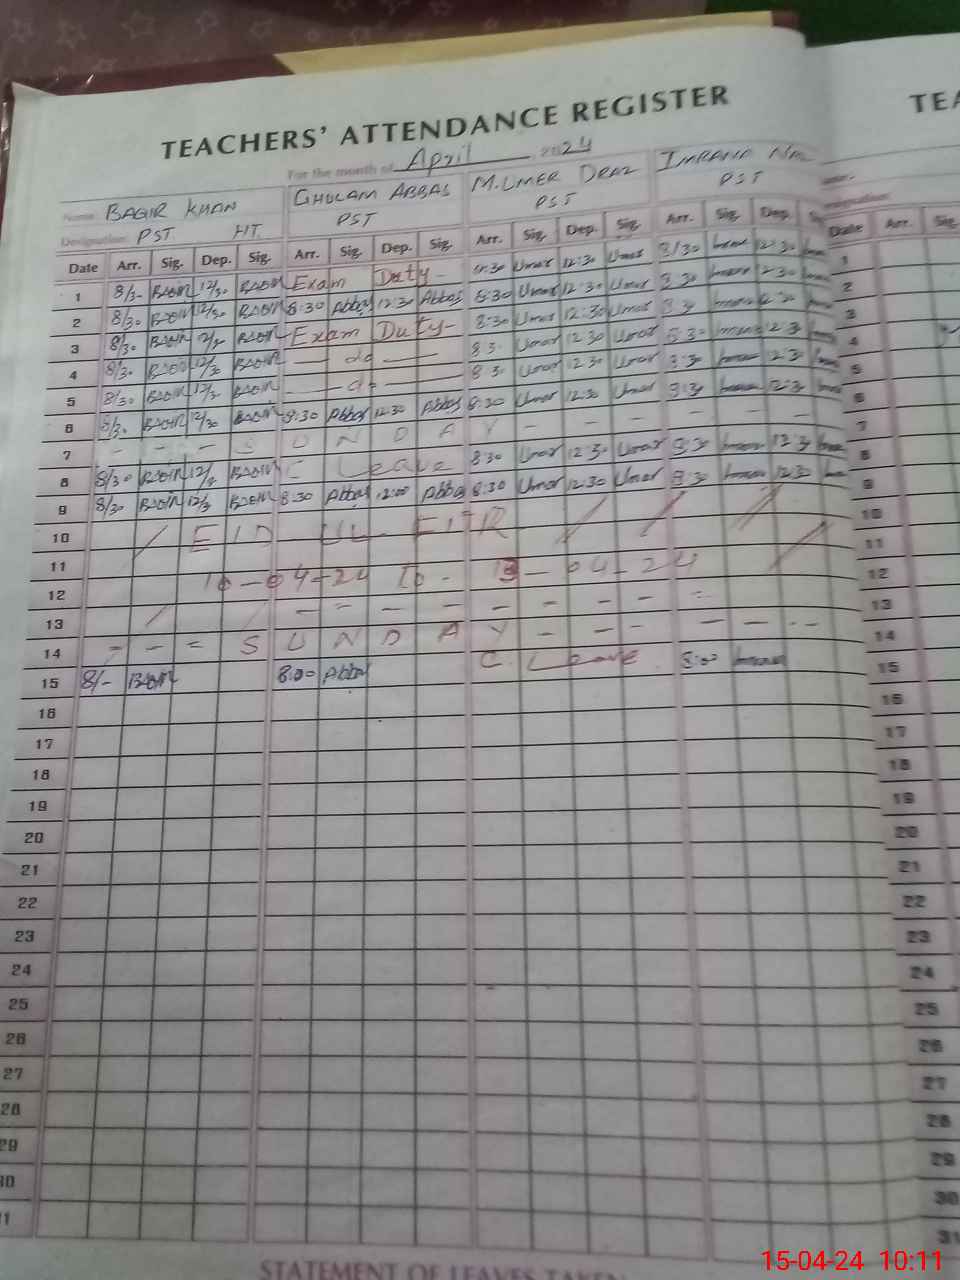 TEACHERS' ATTENDANCE REGISTER
TEA
For the month of April 2024
Name BAQIR KHAN GHULAM ABBAS M.UMER DRAZ IMRANA
Designation PST HT. PST PST PST
Date Arr. Sig. Dep. Sig. Arr. Sig. Dep. Sig. Arr. Sig. Dep. Sig. Arr. Sig. Dep. Date Arr. Sig.
1 8/30 BAQIR 12/30 BAQIR Exam Duty 8:30 Umar 12:30 Umar 8/30 12:30 1
2 8/30 BAQIR 12/30 BAQIR 8:30 Abbas 12:30 Abbas 8:30 Umar 12:30 Umar 8:30 12:30 2
3 8/30 BAQIR 12/30 BAQIR Exam Duty 8:30 Umar 12:30 Umar 8:30 12:30 3
4 8/30 BAQIR 12/30 BAQIR — do — 8:30 Umar 12:30 Umar 8:30 12:30 4
5 8/30 BAQIR 12/30 BAQIR — do — 8:30 Umar 12:30 Umar 8:30 12:30 5
6 8/30 BAQIR 12/30 BAQIR 8:30 Abbas 12:30 Abbas 8:30 Umar 12:30 Umar 8:30 12:30 6
7 - - - S U N D A Y - - - - - - 7
8 8/30 BAQIR 12/30 BAQIR C Leave 8:30 Umar 12:30 Umar 8:30 12:30 8
9 8/30 BAQIR 12/30 BAQIR 8:30 Abbas 12:00 Abbas 8:30 Umar 12:30 Umar 8:30 12:30 9
10 EID UL FITR 10
11 11
12 10-04-24 To - 13-04-24 12
13 - - - - - - - - - 13
14 - - = S U N D A Y - - - - - - 14
15 8/- BAQIR 8:00 Abbas C. Leave 8:00 15
16 16
17 17
18 18
19 19
20 20
21 21
22 22
23 23
24 24
25 25
26 26
27 27
28 28
29 29
30 30
31 31
STATEMENT OF LEAVES TAKEN
15-04-24 10:11